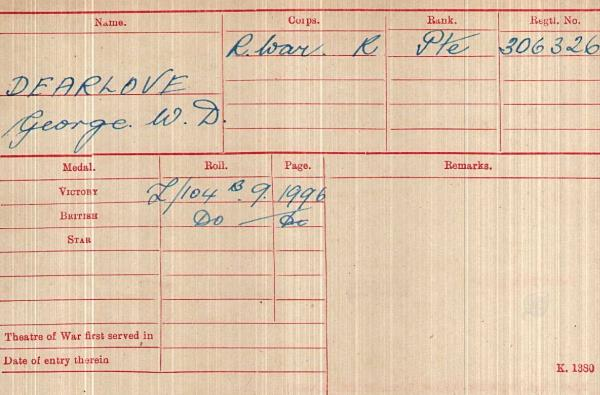 Name. Corps. Rank. Regtl. No.
R. War. R Pte 306326
DEARLOVE
George. W. D.
Medal. Roll. Page. Remarks.
VICTORY L/104 B. 9. 1996
BRITISH Do Do
STAR
Theatre of War first served in
Date of entry therein
K. 1380